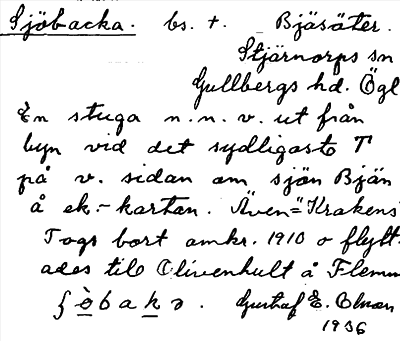 Sjöbacka. bs. †. Bjäsäter.
Stjärnorps sn
Gullbergs hd. Ögl
En stuga n.n.v. ut från
byn vid det sydligaste T
på v. sidan om sjön Bjän
å ek.-kartan. Även="Krakens
Togs bort omkr. 1910 o flytt-
ades till Olivenhult å Flemm
Gustaf E. Olson
1936